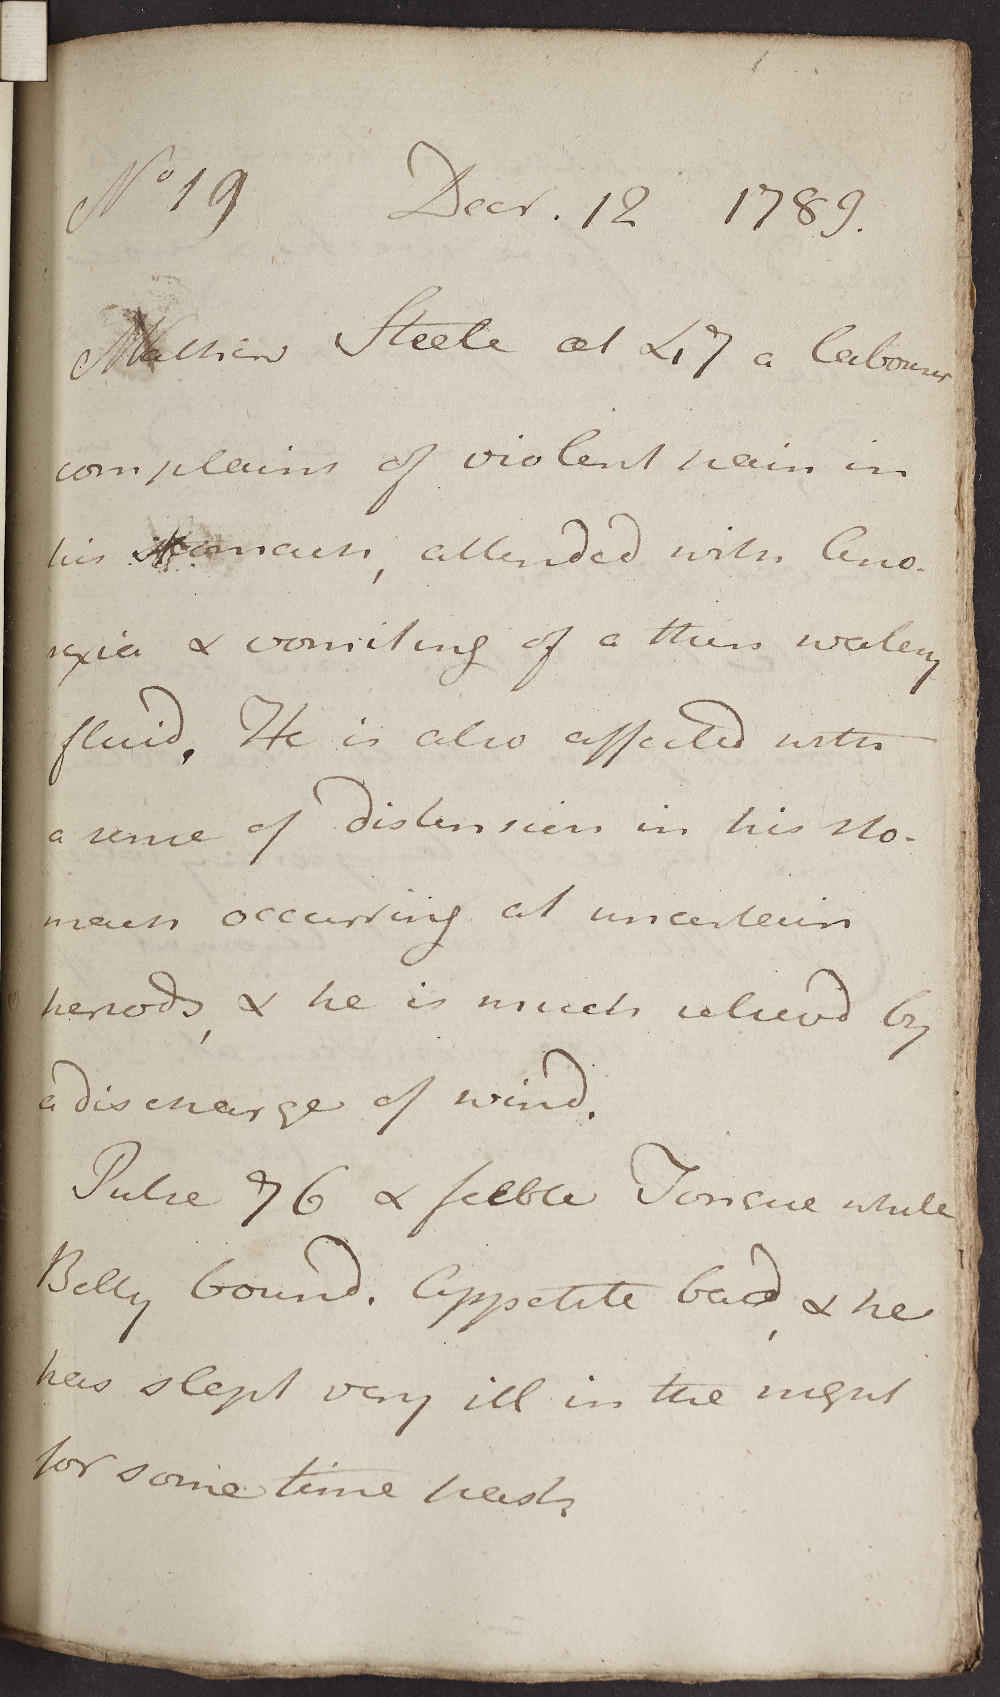 No 19 Decr. 12 1789.
Mathew Steele æt 47 a labourer
complains of violent pain in
his stomach, attended with Ano-
rexia & vomiting of a thin watery
fluid. He is also affected with
a sense of distension in his sto-
mach occurring at uncertain
periods, & he is much relieved by
a discharge of wind.
Pulse 76 & feeble Tongue white
Belly bound. Appetite bad, & he
has slept very ill in the night
for some time past.